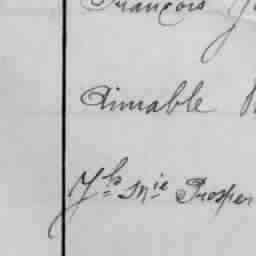 François
Aimable
Jh Mie Prosper